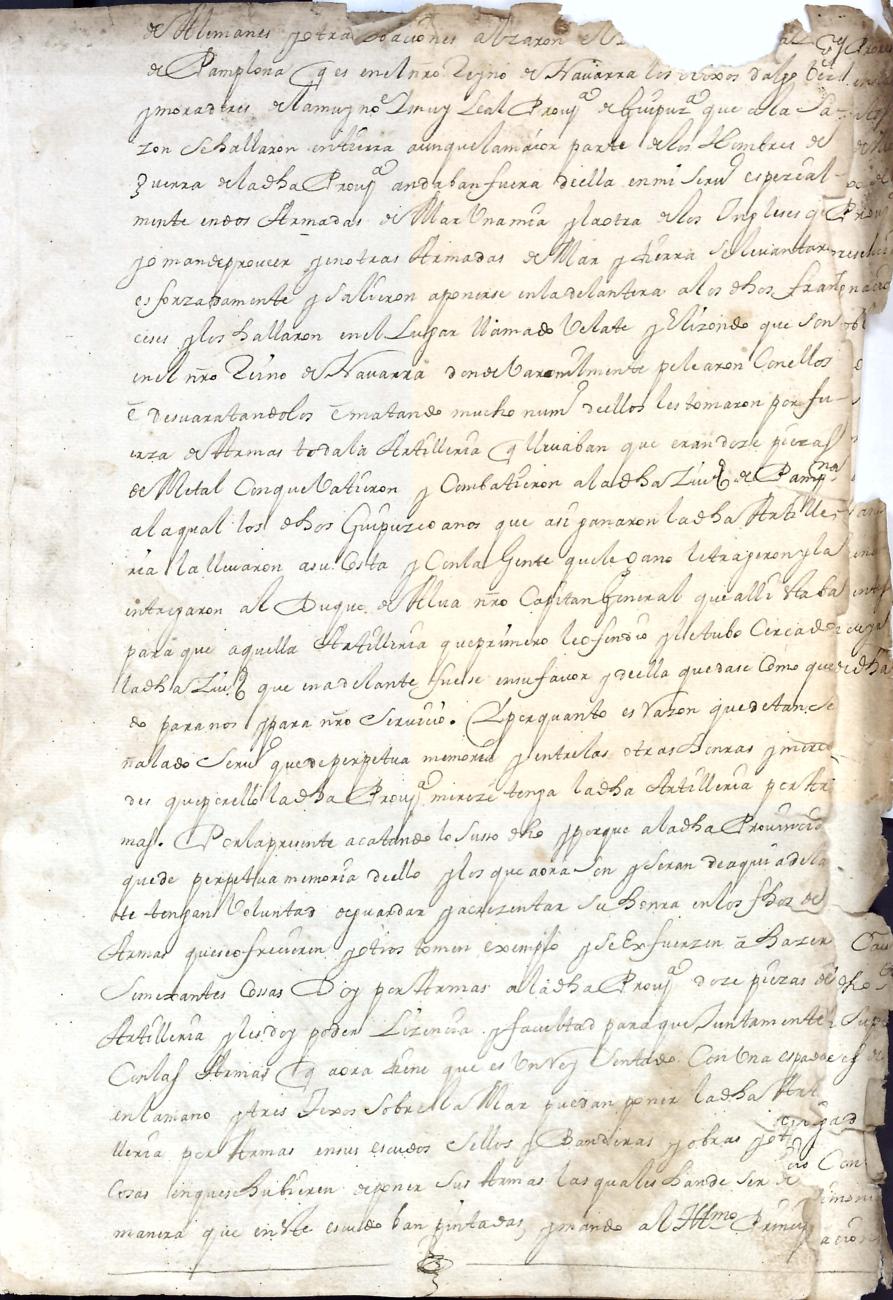 de Alemanes y otras naciones alzaron el
de Pamplona q es en el nro Reyno de Navarra los hixos dalgo
y moradores de la muy noe. y muy Leal Prouja de Guipuza que a la Sa-
zon se hallaron en tierra aunque la maior parte de los Hombres de
Guerra de la dha Prouja andaban fuera de ella en mi seruo especial-
mente en dos Armadas de Mar Vna mia y la otra de los Ingleses q
yo mande proueer y en otras Armadas de Mar y tierra se leuantaron
esforzadamente y salieron a ponerse en la delantera a los dhos fran-
ceses y los hallaron en el Lugar llamado Velate y Elizondo que son
en el nro Reino de Navarra donde Varonilmente pelearon con ellos
ē desuaratandolos ē matando mucho numo de ellos les tomaron por fu-
erza de Armas toda la Artilleria q lleuaban que eran doze piezas
de Metal con que Vatieron y Combatieron a la dha Ziud de Pampna
a la qual los dhos Guipuzcoanos que asi ganaron la dha Artille-
ria la lleuaron a su Costa y con la Gente que le gano le trageron y la
entregaron al Duque de Alua nro Capitan General que alli estaba
para que aquella Artilleria que primero le ofendio y le tubo Cercado
la dha Ziud que en adelante fuese en su fauor y de ella quedase Como que
do para nos y para nro Seruicio. E por quanto es razon que de tan se
ñalado seruo quede perpetua memoria y entre las otras honras y merce
des que por ello la dha Prouja mereze tenga la dha Artilleria por Ar
mas. Por la presente acatando lo suso dho y porque a la dha Prouincia
quede perpetua memoria de ello y los que aora son y seran de aqui adela
te tengan Voluntad de guardar y acrezentar su honra en los fhos de
Armas que se ofrecieren y otros tomen exemplo y se Exfuerzen ā hazer
Semexantes Cossas Doy por Armas a la dha Prouja doze piezas de
Artilleria y les doy poder Lizencia y facultad para que Juntamente
Con las Armas q aora tiene que es Vn rey sentado Con Vna espada
en la mano y tres Texos sobre la Mar puedan poner la dha Arti
lleria por Armas en sus escudos Sellos y Banderas y obras y ot
Cosas en que hubieren de poner sus Armas las quales hande ser de
manera que en este escudo ban pintadas, y mando al Illmo Princi